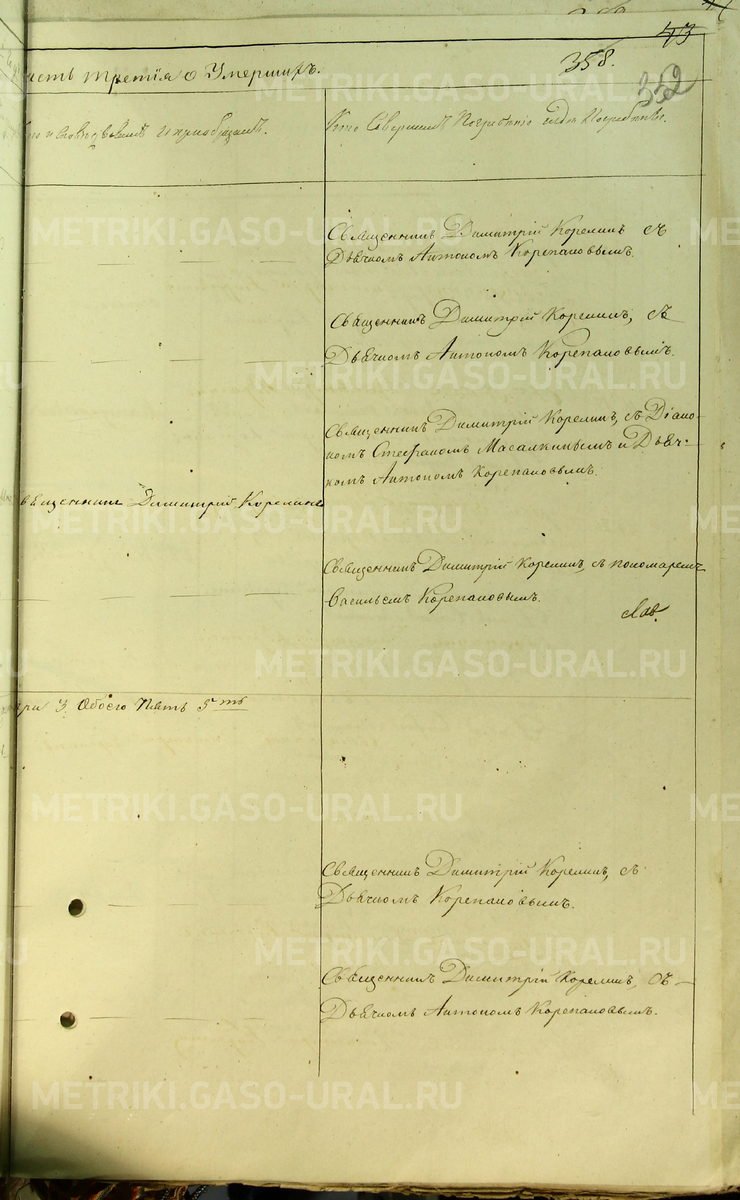 43
358.
352
сть третія о Умершихъ.
и пріобщалъ.
Кто Совершалъ Погребеніе и гдѣ Погребены.
Священникъ Димитрій Корелинъ съ
Дьячкомъ Антономъ Корепановымъ.
Священникъ Димитрій Корелинъ, съ
Дьячкомъ Антономъ Корепановымъ.
Священникъ Димитрій Корелинъ, съ Діако-
номъ Стефаномъ Масалкинымъ и Дьяч-
комъ Антономъ Корепановымъ.
вященникъ Димитрій Корелинъ
Священникъ Димитрій Корелинъ, съ пономаремъ
Васильемъ Корепановымъ.
три 3. Обоего Пять 5ть
Священникъ Димитрій Корелинъ, съ
Дьячкомъ Корепановымъ.
Священникъ Димитрій Корелинъ, съ
Дьячкомъ Антономъ Корепановымъ.
METRIKI.GASO-URAL.RU